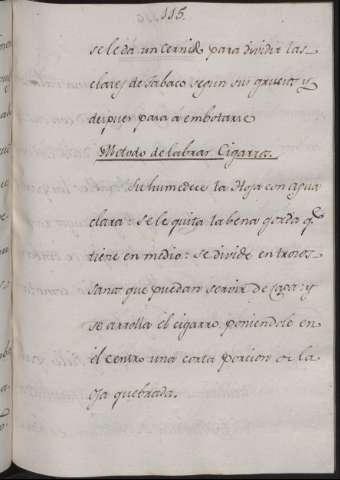 115.
se le da un cernir para dividir las
clases de tabaco segun sus gruesos y
despues para a embotarre
Metodo de labrar Cigarros.
Su humedece la Hoja con agua
clara: se le quita la bena gorda q.^e
tiene en medio: se divide en trozos
sanos que puedan servir de capa: y
se arrolla el cigarro, poniendole en
el centro una corta porcion de la
oja quebrada.